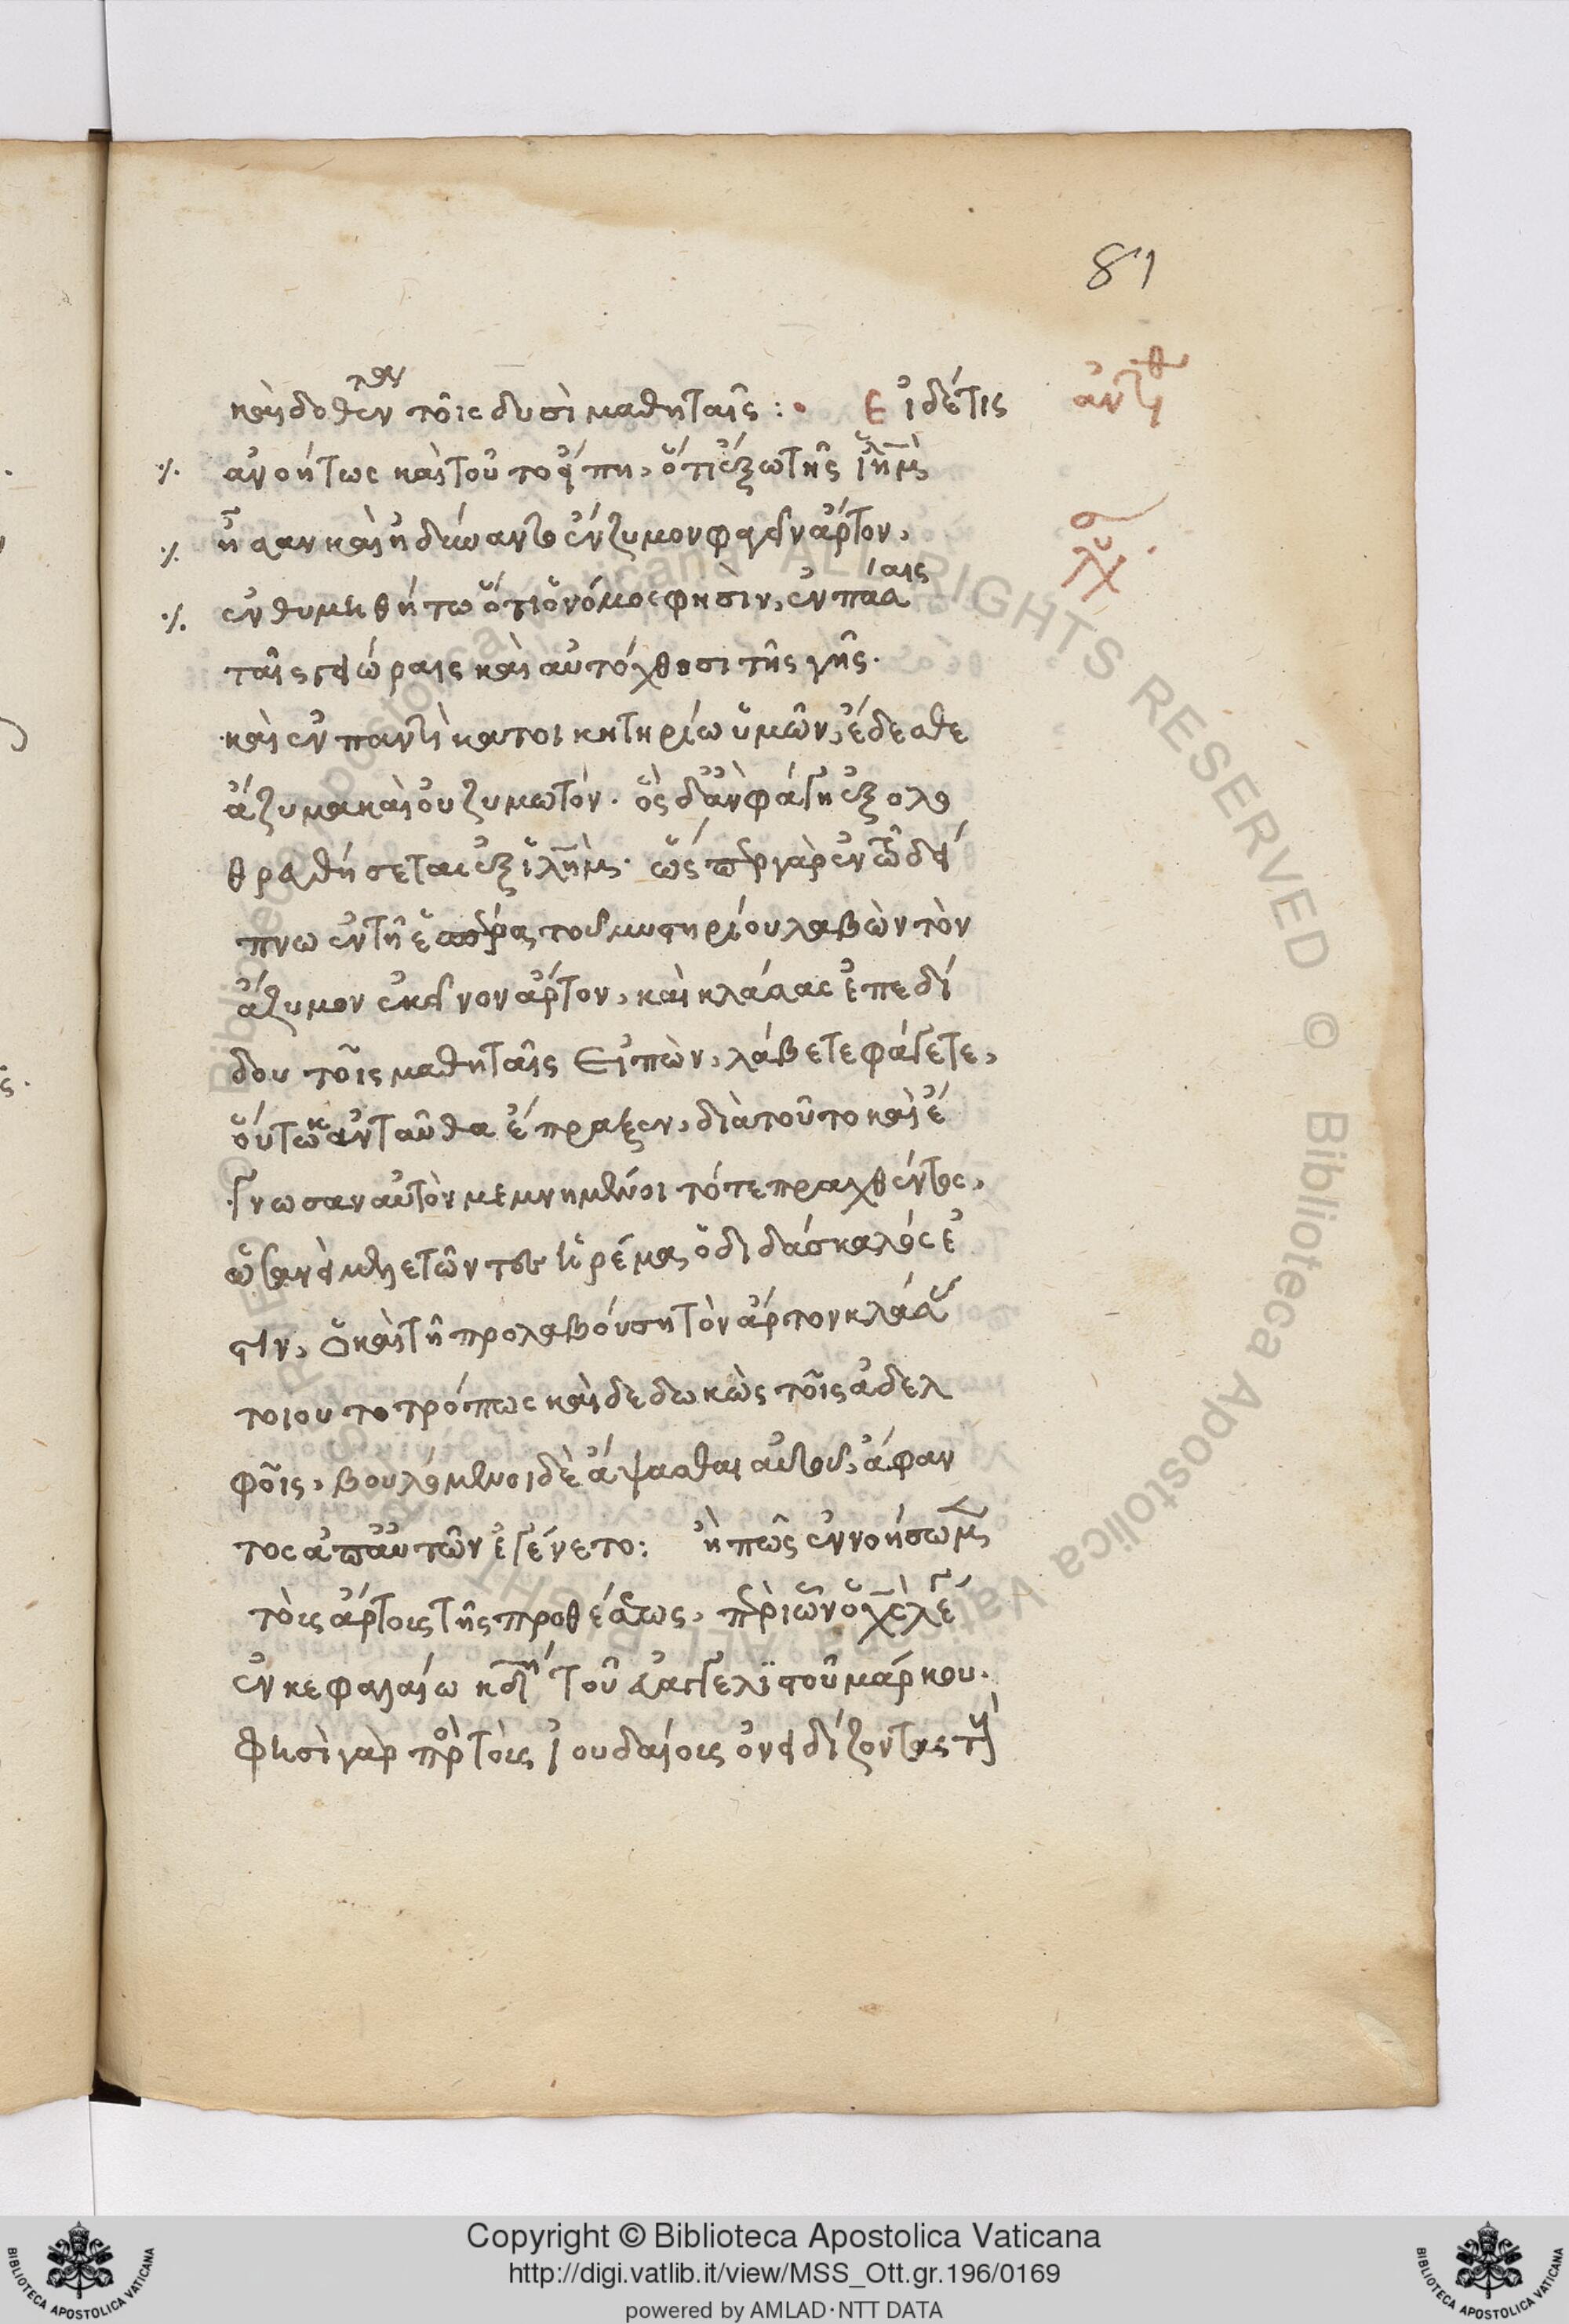 81
καὶ δοθὲν τοῖς δυσὶ μαθηταῖς : Εἰ δέ τις
ἀνοήτως καὶ τοῦτο εἴπη, ὅτι ἔξω τῆς ἰλημ
ἦσαν καὶ ἠδύναντο ἔνζυμον φαγεῖν ἄρτον,
ἐνθυμηθήτω ὅτι ὁ νόμος φησὶν, ἐν πάσαις
ταῖς χώραις καὶ αὐτόχθοσι τῆς γῆς.
καὶ ἐν παντὶ κατοικητηρίω ὑμῶν, ἔδεσθε
ἄζυμα καὶ οὐ ζυμωτόν. ὃς δ' ἂν φάγη ἐξολο
θρευθήσεται ἐξ ἰλημ. ὥσπερ γὰρ ἐν τῶ δεί
πνω ἐν τῆ ἑσπέρας τοῦ μυστηρίου λαβὼν τὸν
ἄζυμον ἐκεῖνον ἄρτον, καὶ κλάσας ἐπεδί
δου τοῖς μαθηταῖς εἰπὼν, λάβετε φάγετε,
οὕτω κἀνταῦθα ἔπραξεν, διὰ τοῦτο καὶ ἔ
γνωσαν αὐτὸν μεμνημένοι τότε πραχθέντος,
ὁ διδάσκαλός ἐ
στιν, ὁ καὶ τῆ προλαβούση τὸν ἄρτον κλάσας
τοιουτοτρόπως καὶ δεδωκὼς τοῖς ἀδελ
φοῖς, βουλόμενοι δὲ ἅψασθαι αὐτοῦ, ἄφαν
τος ἀπ' αὐτῶν ἐγένετο: ἢ πῶς ἐννοήσωμεν
τοῖς ἄρτοις τῆς προθέσεως, περὶ ὧν ὁ χς λέγει
ἐν κεφαλαίω κδη τοῦ εὐαγγελιστοῦ μάρκου.
Φησὶ γὰρ πρὸς τοῖς ἰουδαίοις ὀνειδίζοντας
Copyright © Biblioteca Apostolica Vaticana
http://digi.vatlib.it/view/MSS_Ott.gr.196/0169
powered by AMLAD·NTT DATA